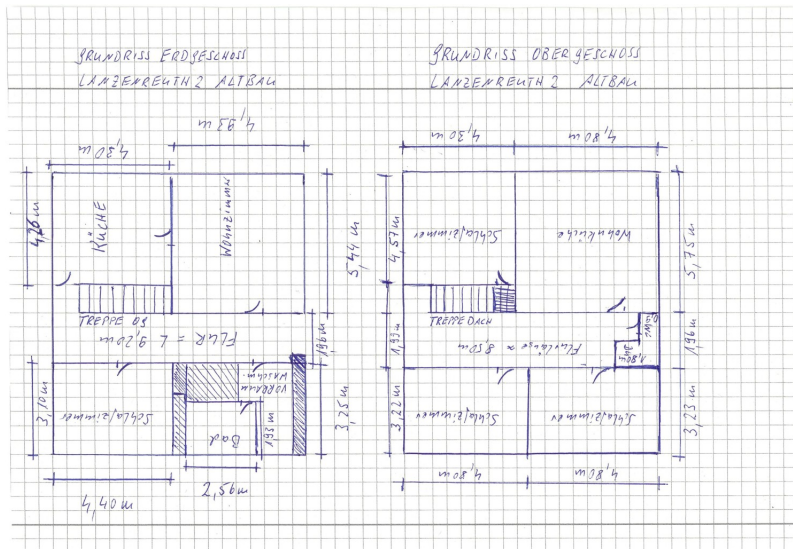 GRUNDRISS ERDGESCHOSS
LANZENREUTH 2 ALTBAU
4,30m
4,93m
4,26m
KÜCHE
Wohnzimmer
5,44m
TREPPE OG
FLUR = L 9,20m
1,96m
3,10m
Schlafzimmer
VORRAUM
WASCHM.
Bad
1,93m
3,25m
4,40m
2,56m
GRUNDRISS OBERGESCHOSS
LANZENREUTH 2 ALTBAU
4,30m
4,80m
4,57m
Schlafzimmer
Wohnküche
5,75m
TREPPE DACH
1,93m
Flurlänge ≈ 8,50m
1,80m
1,96m
3,22m
Schlafzimmer
Schlafzimmer
3,23m
4,80m
4,80m